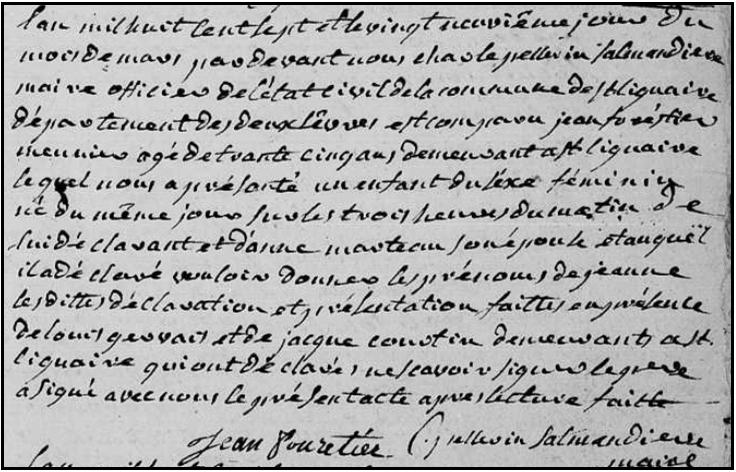 L'an mil huit cent sept et le vingt neuvième jour du
mois de mars par devant nous charle pellerin salmandiere
maire officier de l'état civil de la commune de st liguaire
département des deux sèvres est comparu jean foréstier
meunier agé de trante cinq ans demeurant a st liguaire
lequel nous a présanté un enfant du séxe féminin
né du même jour sur les trois heures du matin de
lui déclarant et d'anne marteau son épouse et auquël
il a déclaré vouloir donner les prénoms de jeanne
les dittes déclaration et présentation faittes en présence
de louis gervais et de jacque coustin demeurants a st
liguaire qui ont déclarés ne scavoir signer le père
a signé avec nous le présent acte apres lecture faitte
Jean Fouretier C. pellerin Salmandiere
maire